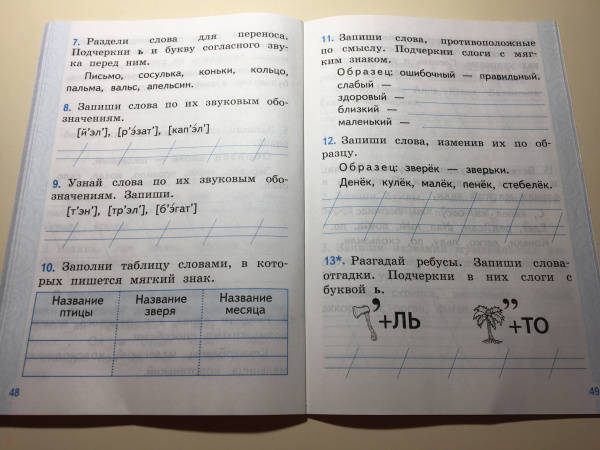 7. Раздели слова для переноса.
Подчеркни ь и букву согласного зву-
ка перед ним.
Письмо, сосулька, коньки, кольцо,
пальма, вальс, апельсин.
8. Запиши слова по их звуковым обо-
значениям.
[й’эл’], [р’э́зат’], [кап’э́л’]
9. Узнай слова по их звуковым обо-
значениям. Запиши.
[т’эн’], [тр’эл’], [б’э́гат’]
10. Заполни таблицу словами, в кото-
рых пишется мягкий знак.
Название птицы
Название зверя
Название месяца
48
11. Запиши слова, противоположные
по смыслу. Подчеркни слоги с мяг-
ким знаком.
Образец: ошибочный — правильный.
слабый —
здоровый —
близкий —
маленький —
12. Запиши слова, изменив их по об-
разцу.
Образец: зверёк — зверьки.
Денёк, кулёк, малёк, пенёк, стебелёк.
13*. Разгадай ребусы. Запиши слова-
отгадки. Подчеркни в них слоги с
буквой ь.
’+ЛЬ
’’+ТО
49